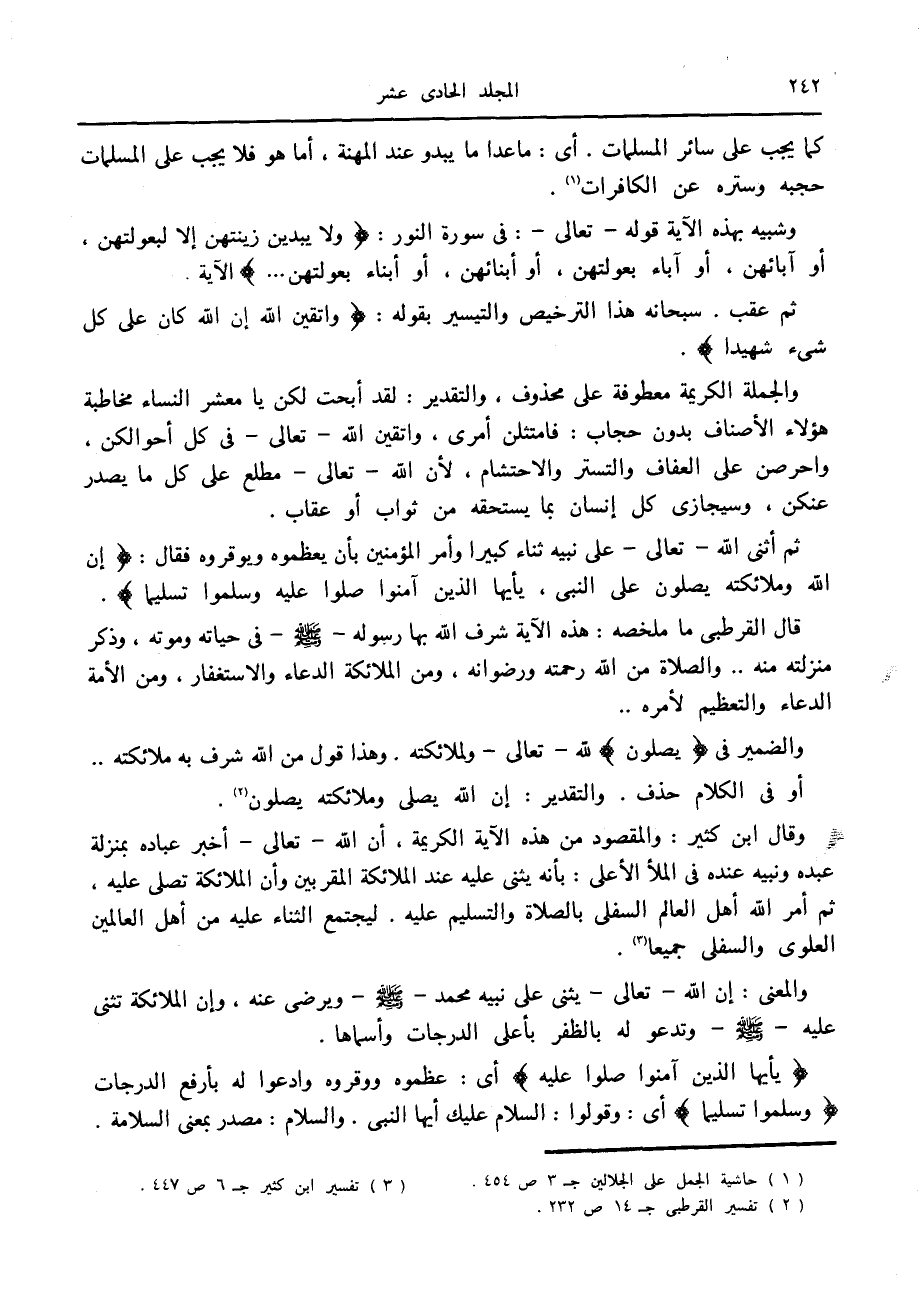 ٢٤٢
المجلد الحادى عشر
كما يجب على سائر المسلمات . أى : ماعدا ما يبدو عند المهنة ، أما هو فلا يجب على المسلمات
حجبه وستره عن الكافرات(١) .
وشبيه بهذه الآية قوله – تعالى – : فى سورة النور : ﴿ ولا يبدين زينتهن إلا لبعولتهن ،
أو آبائهن ، أو آباء بعولتهن ، أو أبنائهن ، أو أبناء بعولتهن... ﴾ الآية .
ثم عقب . سبحانه هذا الترخيص والتيسير بقوله : ﴿ واتقين الله إن الله كان على كل
شىء شهيدا ﴾ .
والجملة الكريمة معطوفة على محذوف ، والتقدير : لقد أبحت لكن يا معشر النساء مخاطبة
هؤلاء الأصناف بدون حجاب : فامتثلن أمرى ، واتقين الله – تعالى – فى كل أحوالكن ،
واحرصن على العفاف والتستر والاحتشام ، لأن الله – تعالى – مطلع على كل ما يصدر
عنكن ، وسيجازى كل إنسان بما يستحقه من ثواب أو عقاب .
ثم أثنى الله – تعالى – على نبيه ثناء كبيرا وأمر المؤمنين بأن يعظموه ويوقروه فقال : ﴿ إن
الله وملائكته يصلون على النبى ، يأيها الذين آمنوا صلوا عليه وسلموا تسليما ﴾ .
قال القرطبى ما ملخصه : هذه الآية شرف الله بها رسوله – ﷺ – فى حياته وموته ، وذكر
منزلته منه .. والصلاة من الله رحمته ورضوانه ، ومن الملائكة الدعاء والاستغفار ، ومن الأمة
الدعاء والتعظيم لأمره ..
والضمير فى ﴿ يصلون ﴾ لله – تعالى – ولملائكته . وهذا قول من الله شرف به ملائكته ..
أو فى الكلام حذف . والتقدير : إن الله يصلى وملائكته يصلون(٢) .
وقال ابن كثير : والمقصود من هذه الآية الكريمة ، أن الله – تعالى – أخبر عباده بمنزلة
عبده ونبيه عنده فى الملأ الأعلى : بأنه يثنى عليه عند الملائكة المقربين وأن الملائكة تصلى عليه ،
ثم أمر الله أهل العالم السفلى بالصلاة والتسليم عليه . ليجتمع الثناء عليه من أهل العالمين
العلوى والسفلى جميعا(٣) .
والمعنى : إن الله – تعالى – يثنى على نبيه محمد – ﷺ – ويرضى عنه ، وإن الملائكة تثنى
عليه – ﷺ – وتدعو له بالظفر بأعلى الدرجات وأسماها .
﴿ يأيها الذين آمنوا صلوا عليه ﴾ أى : عظموه ووقروه وادعوا له بأرفع الدرجات
﴿ وسلموا تسليما ﴾ أى : وقولوا : السلام عليك أيها النبى . والسلام : مصدر بمعنى السلامة .
( ١ ) حاشية الجمل على الجلالين جـ ٣ ص ٤٥٤ .
( ٢ ) تفسير القرطبى جـ ١٤ ص ٢٣٢ .
( ٣ ) تفسير ابن كثير جـ ٦ ص ٤٤٧ .